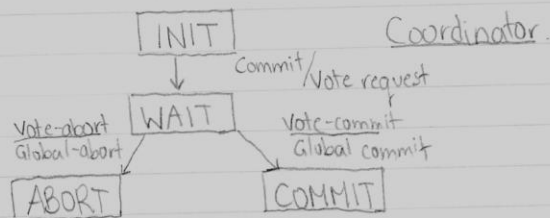 Coordinator.
INIT
Commit/Vote request
WAIT
Vote-abort
Global-abort
Vote-commit
Global commit
ABORT
COMMIT